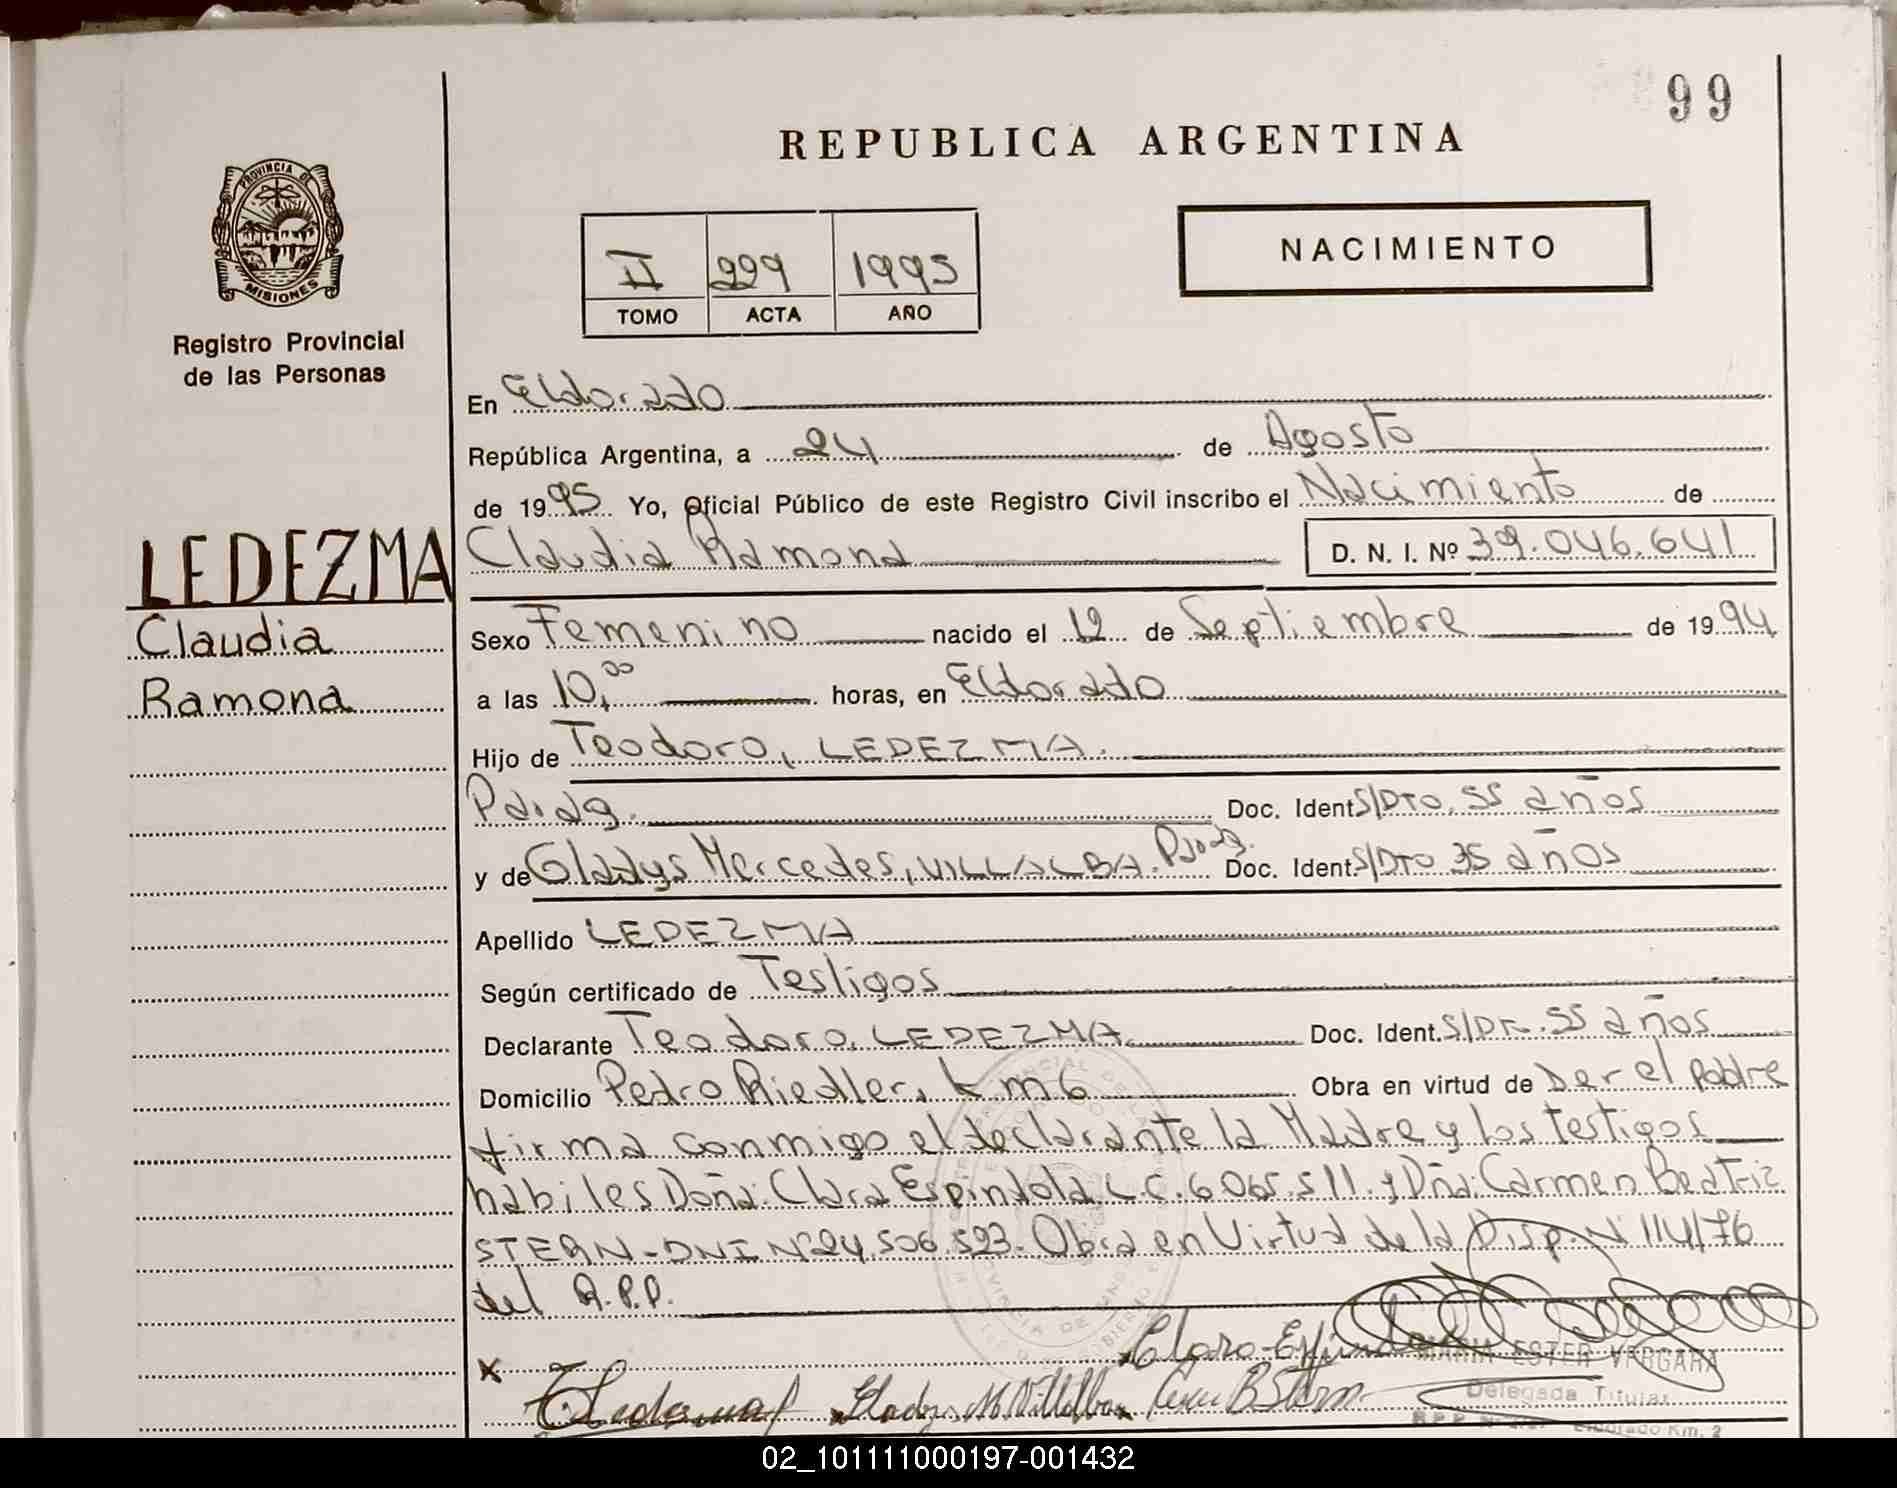 99
REPUBLICA ARGENTINA
PROVINCIA DE
MISIONES
Registro Provincial
de las Personas
II 229 1995
TOMO ACTA AÑO
NACIMIENTO
En Eldorado
República Argentina, a 24 de Agosto
de 1995 Yo, Oficial Público de este Registro Civil inscribo el Nacimiento de
LEDEZMA
Claudia
Ramona
Claudia Ramona D. N. I. Nº 39.046.641
Sexo Femenino nacido el 12 de Septiembre de 1994
a las 10,00 horas, en Eldorado
Hijo de Teodoro, LEDEZMA.
Parag. Doc. Ident. S/DTO. 55 años
y de Gladys Mercedes, VILLALBA. Parag. Doc. Ident. S/DTO 35 años
Apellido LEDEZMA
Según certificado de Testigos
Declarante Teodoro, LEDEZMA Doc. Ident. S/DT. 55 años
Domicilio Pedro Riedller, km 6 Obra en virtud de Ser el Padre
firma conmigo el declarante la Madre y los testigos
habiles Doña: Clara Espindola L.C. 6.065.511. y Dña: Carmen Beatriz
STERN - DNI Nº 24.506.523. Obra en Virtud de la Disp. Nº 114/76
del R.P.P.
X
Clara Espindola
MARIA ESTER VERGARA
T Ledesma Gladys M Villalba B Stern
Delegada Titular
Eldorado Km. 2
02_101111000197-001432